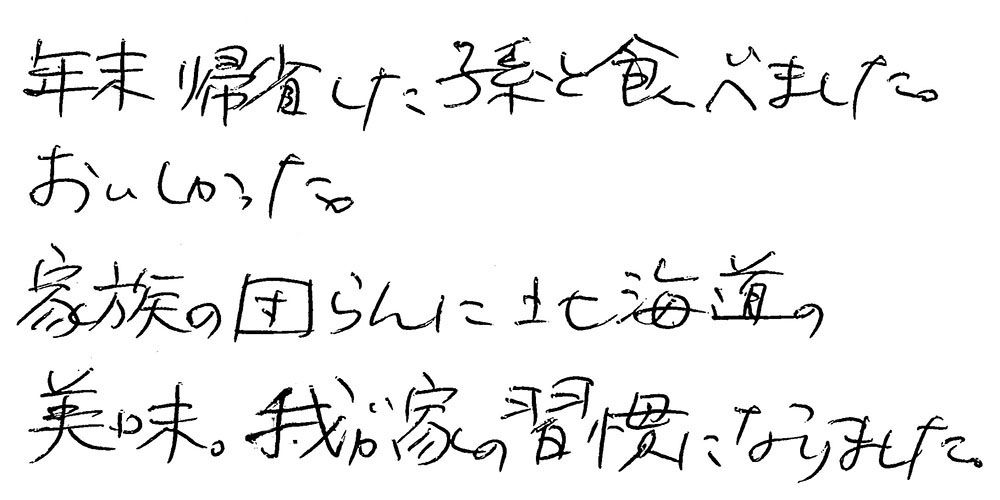 年末帰省した孫と食べました。
おいしかった。
家族の団らんに北海道の
美味。我が家の習慣になりました。